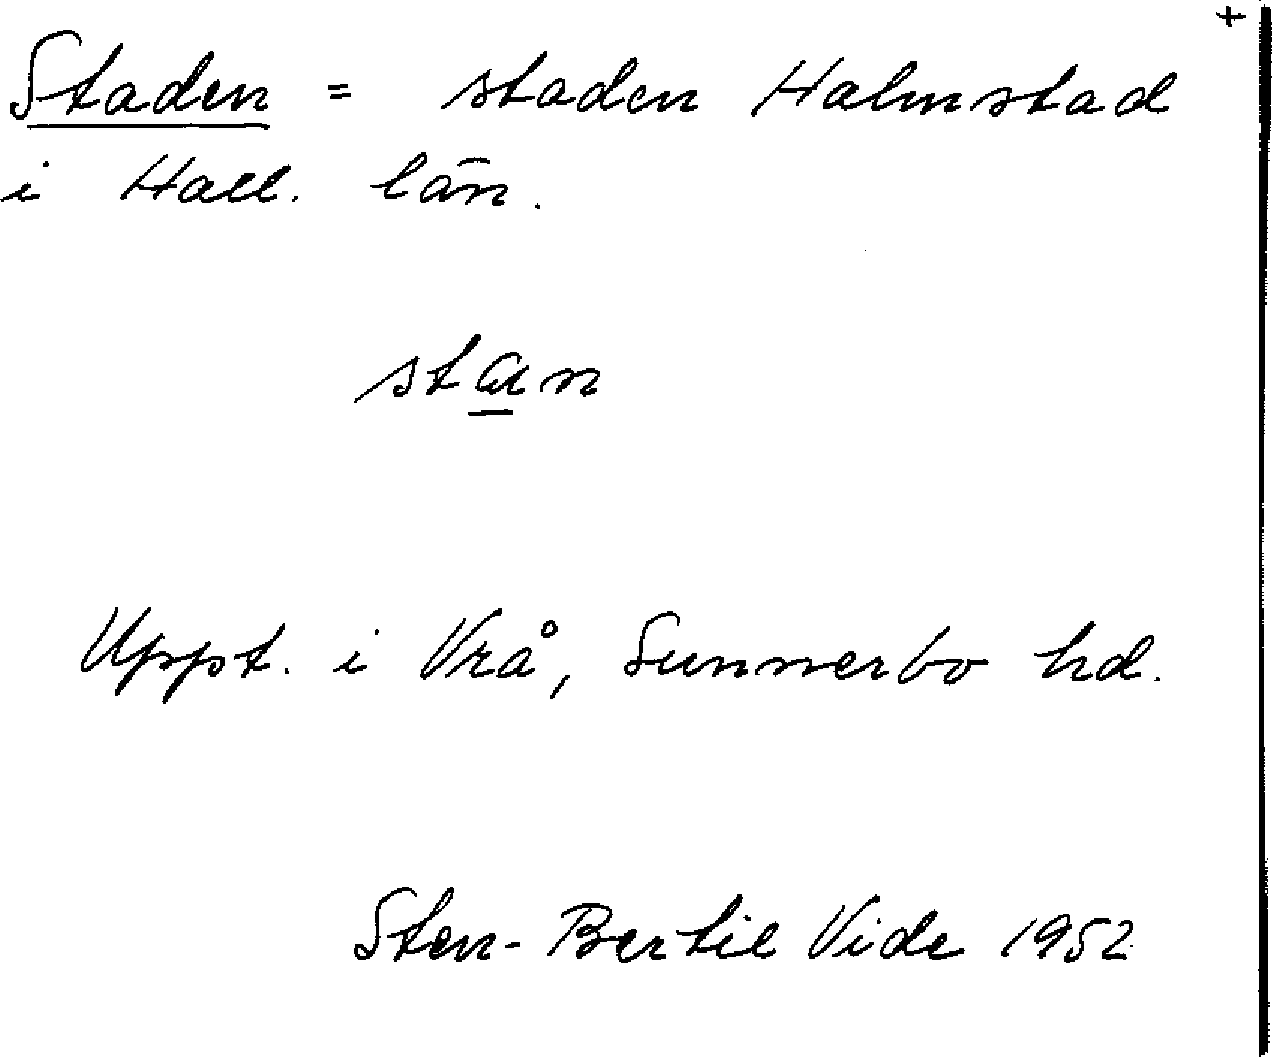 +
Staden = staden Halmstad
i Hall. län.
stan
Uppt. i Vrå, Sunnerbo hd.
Sten-Bertil Vide 1952